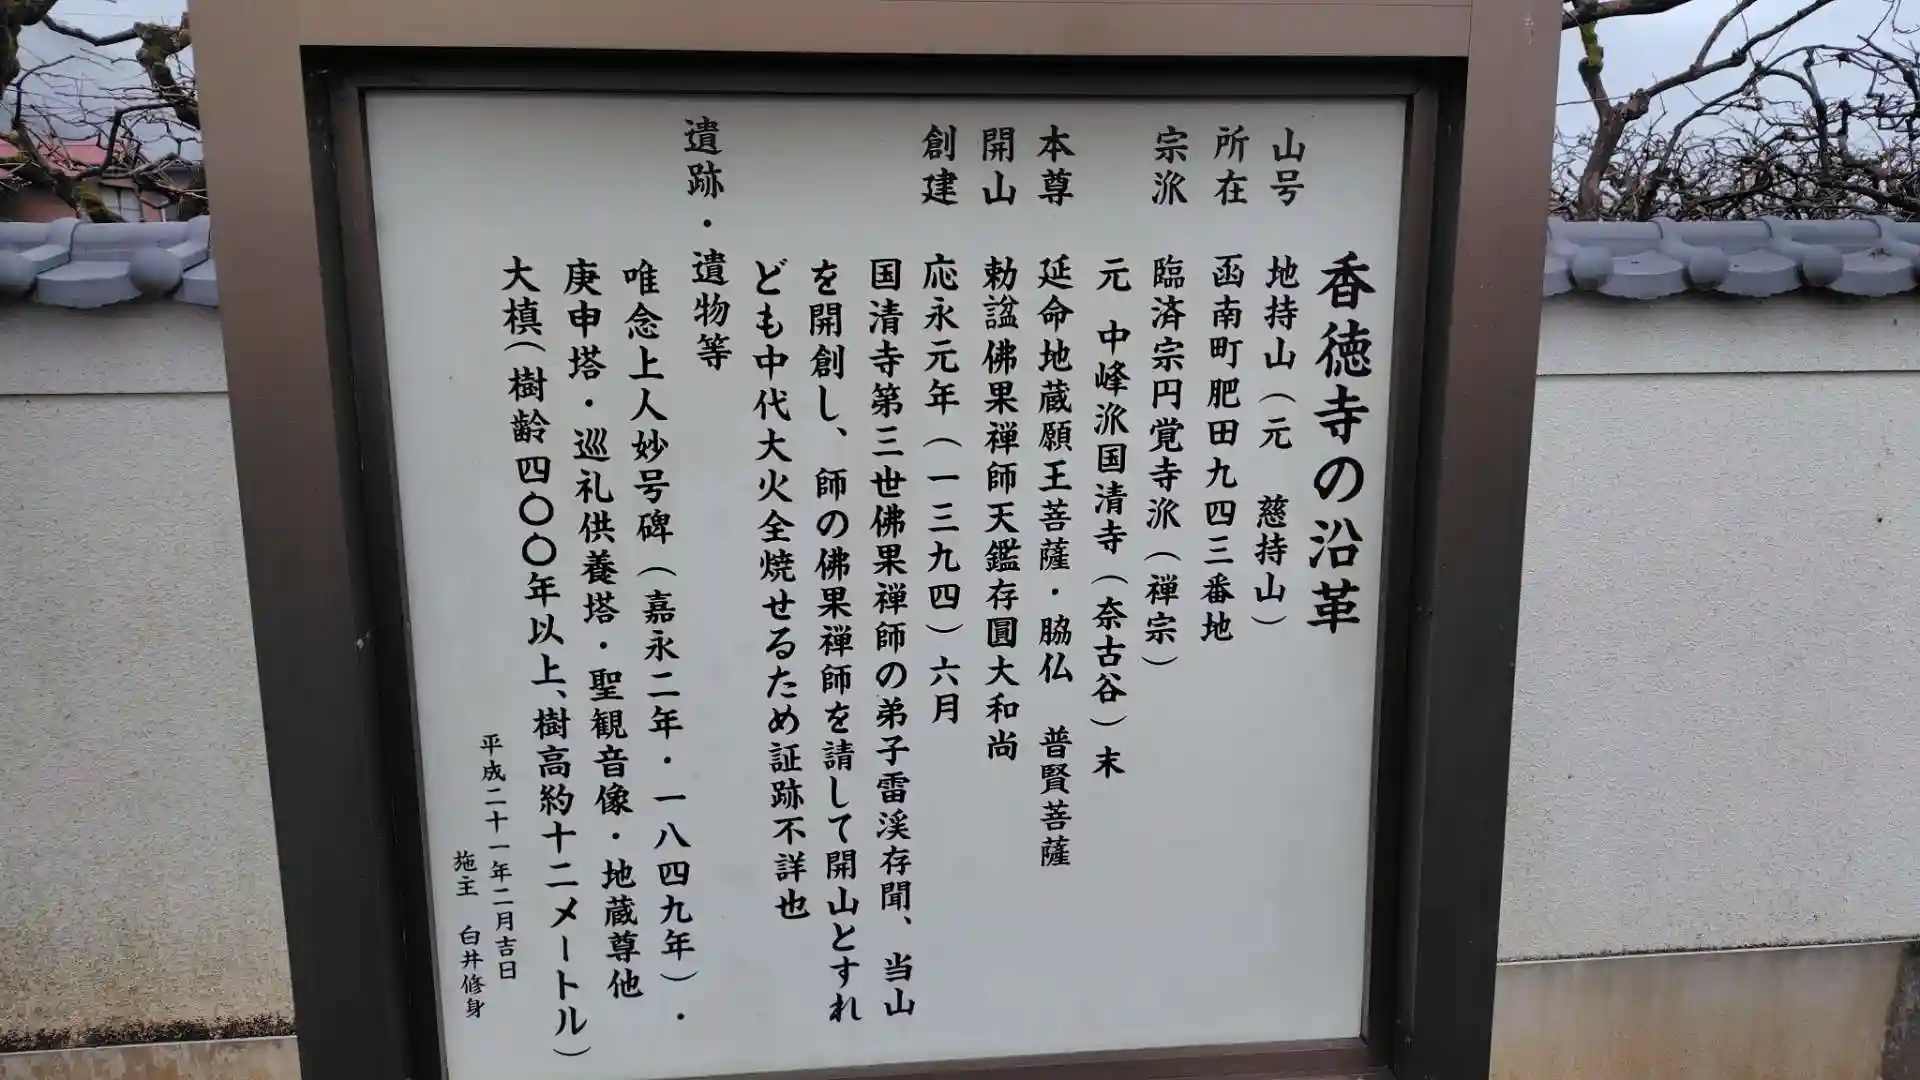 香徳寺の沿革
山号 地持山（元 慈持山）
所在 函南町肥田九四三番地
宗派 臨済宗円覚寺派（禅宗）
元 中峰派国清寺（奈古谷）末
本尊 延命地蔵願王菩薩・脇仏 普賢菩薩
開山 勅諡佛果禅師天鑑存圓大和尚
創建 応永元年（一三九四）六月
国清寺第三世佛果禅師の弟子雷渓存聞、当山
を開創し、師の佛果禅師を請して開山とすれ
ども中代大火全焼せるため証跡不詳也
遺跡・遺物等
唯念上人妙号碑（嘉永二年・一八四九年）・
庚申塔・巡礼供養塔・聖観音像・地蔵尊他
大槙（樹齢四〇〇年以上、樹高約十二メートル）
平成二十一年二月吉日
施主 白井修身